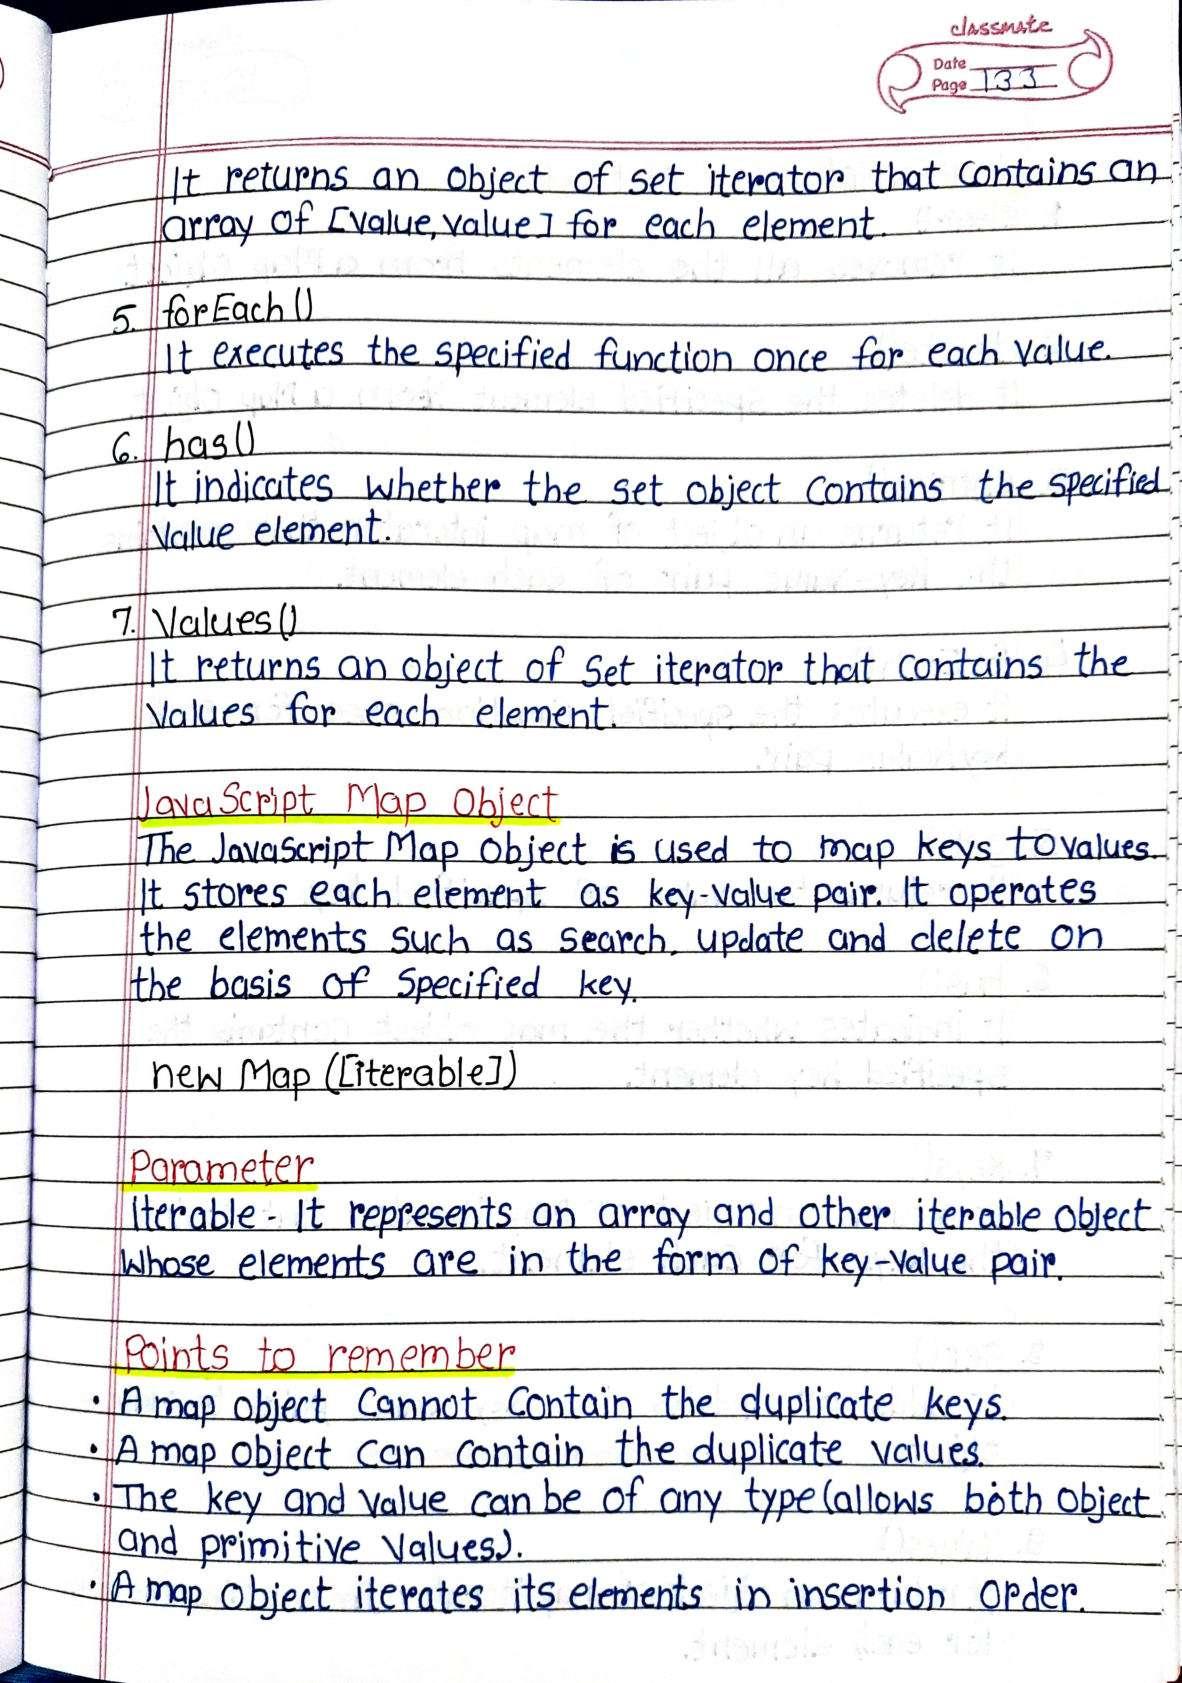 classmate
Date
Page 133
It returns an object of set iterator that contains an
array of [value, value] for each element.
5. forEach()
It executes the specified function once for each value.
6. has()
It indicates whether the set object contains the specified
value element.
7. Values()
It returns an object of Set iterator that contains the
values for each element.
JavaScript Map Object
The JavaScript Map object is used to map keys to values.
It stores each element as key-value pair. It operates
the elements such as search, update and delete on
the basis of specified key.
new Map ([iterable])
Parameter
Iterable - It represents an array and other iterable object
whose elements are in the form of key-value pair.
Points to remember
• A map object cannot contain the duplicate keys.
• A map object can contain the duplicate values.
• The key and value can be of any type (allows both object
and primitive values).
• A map object iterates its elements in insertion order.